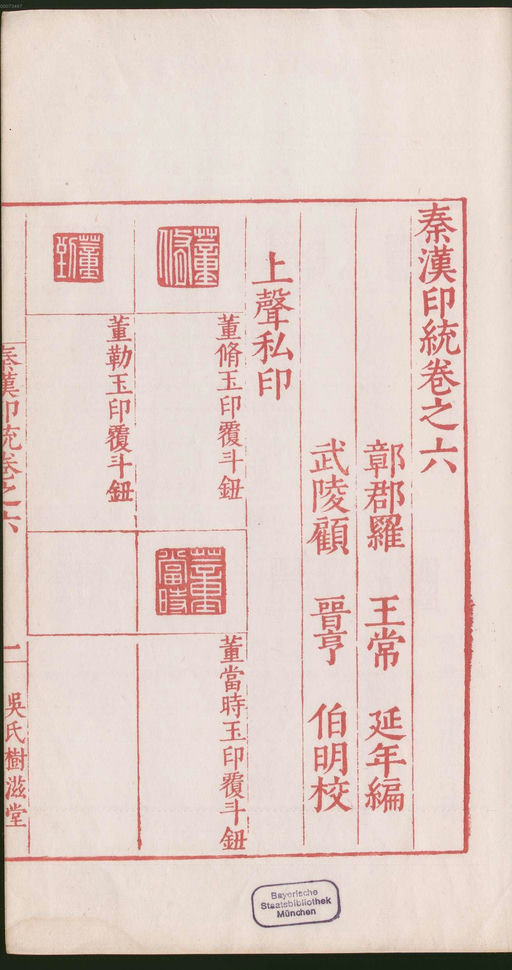 秦漢印統卷之六
鄣郡羅 王常 延年編
武陵顧 晋亨 伯明校
上聲私印
董脩
董脩玉印覆斗鈕
董當時
董當時玉印覆斗鈕
董勒玉印覆斗鈕
秦漢印統卷之六
一
吳氏樹滋堂
Bayerische
Staatsbibliothek
München